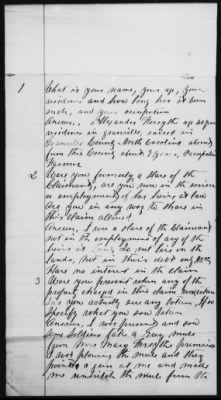 1 What is your name, your age, your
residence and how long has it been
such, and your occupation
Answer, Alexander Forsythe age
residence in Granville, raised in
Granville County, North Carolina
from this County about 3 years, Occupation
Farmer
2 Were you formerly a slave of the
Claimant, are you now in the service
or employment of
Are you in any way to share in
this claim allowed
Answer, I was a slave of the Claimant
not in the employment of any of the
live on the
lands, not in their debt
Have no interest in the claim
3 Were you present when any of the
property charged in this claim
did you actually see any taken, if so
Specify what you saw taken
Answer, I was present and saw
some Soldiers take a Gray mule
from Mrs Mary Forsythe premises
I was plowing the mule and they
a gun at me and made
me unhitch the mule from the